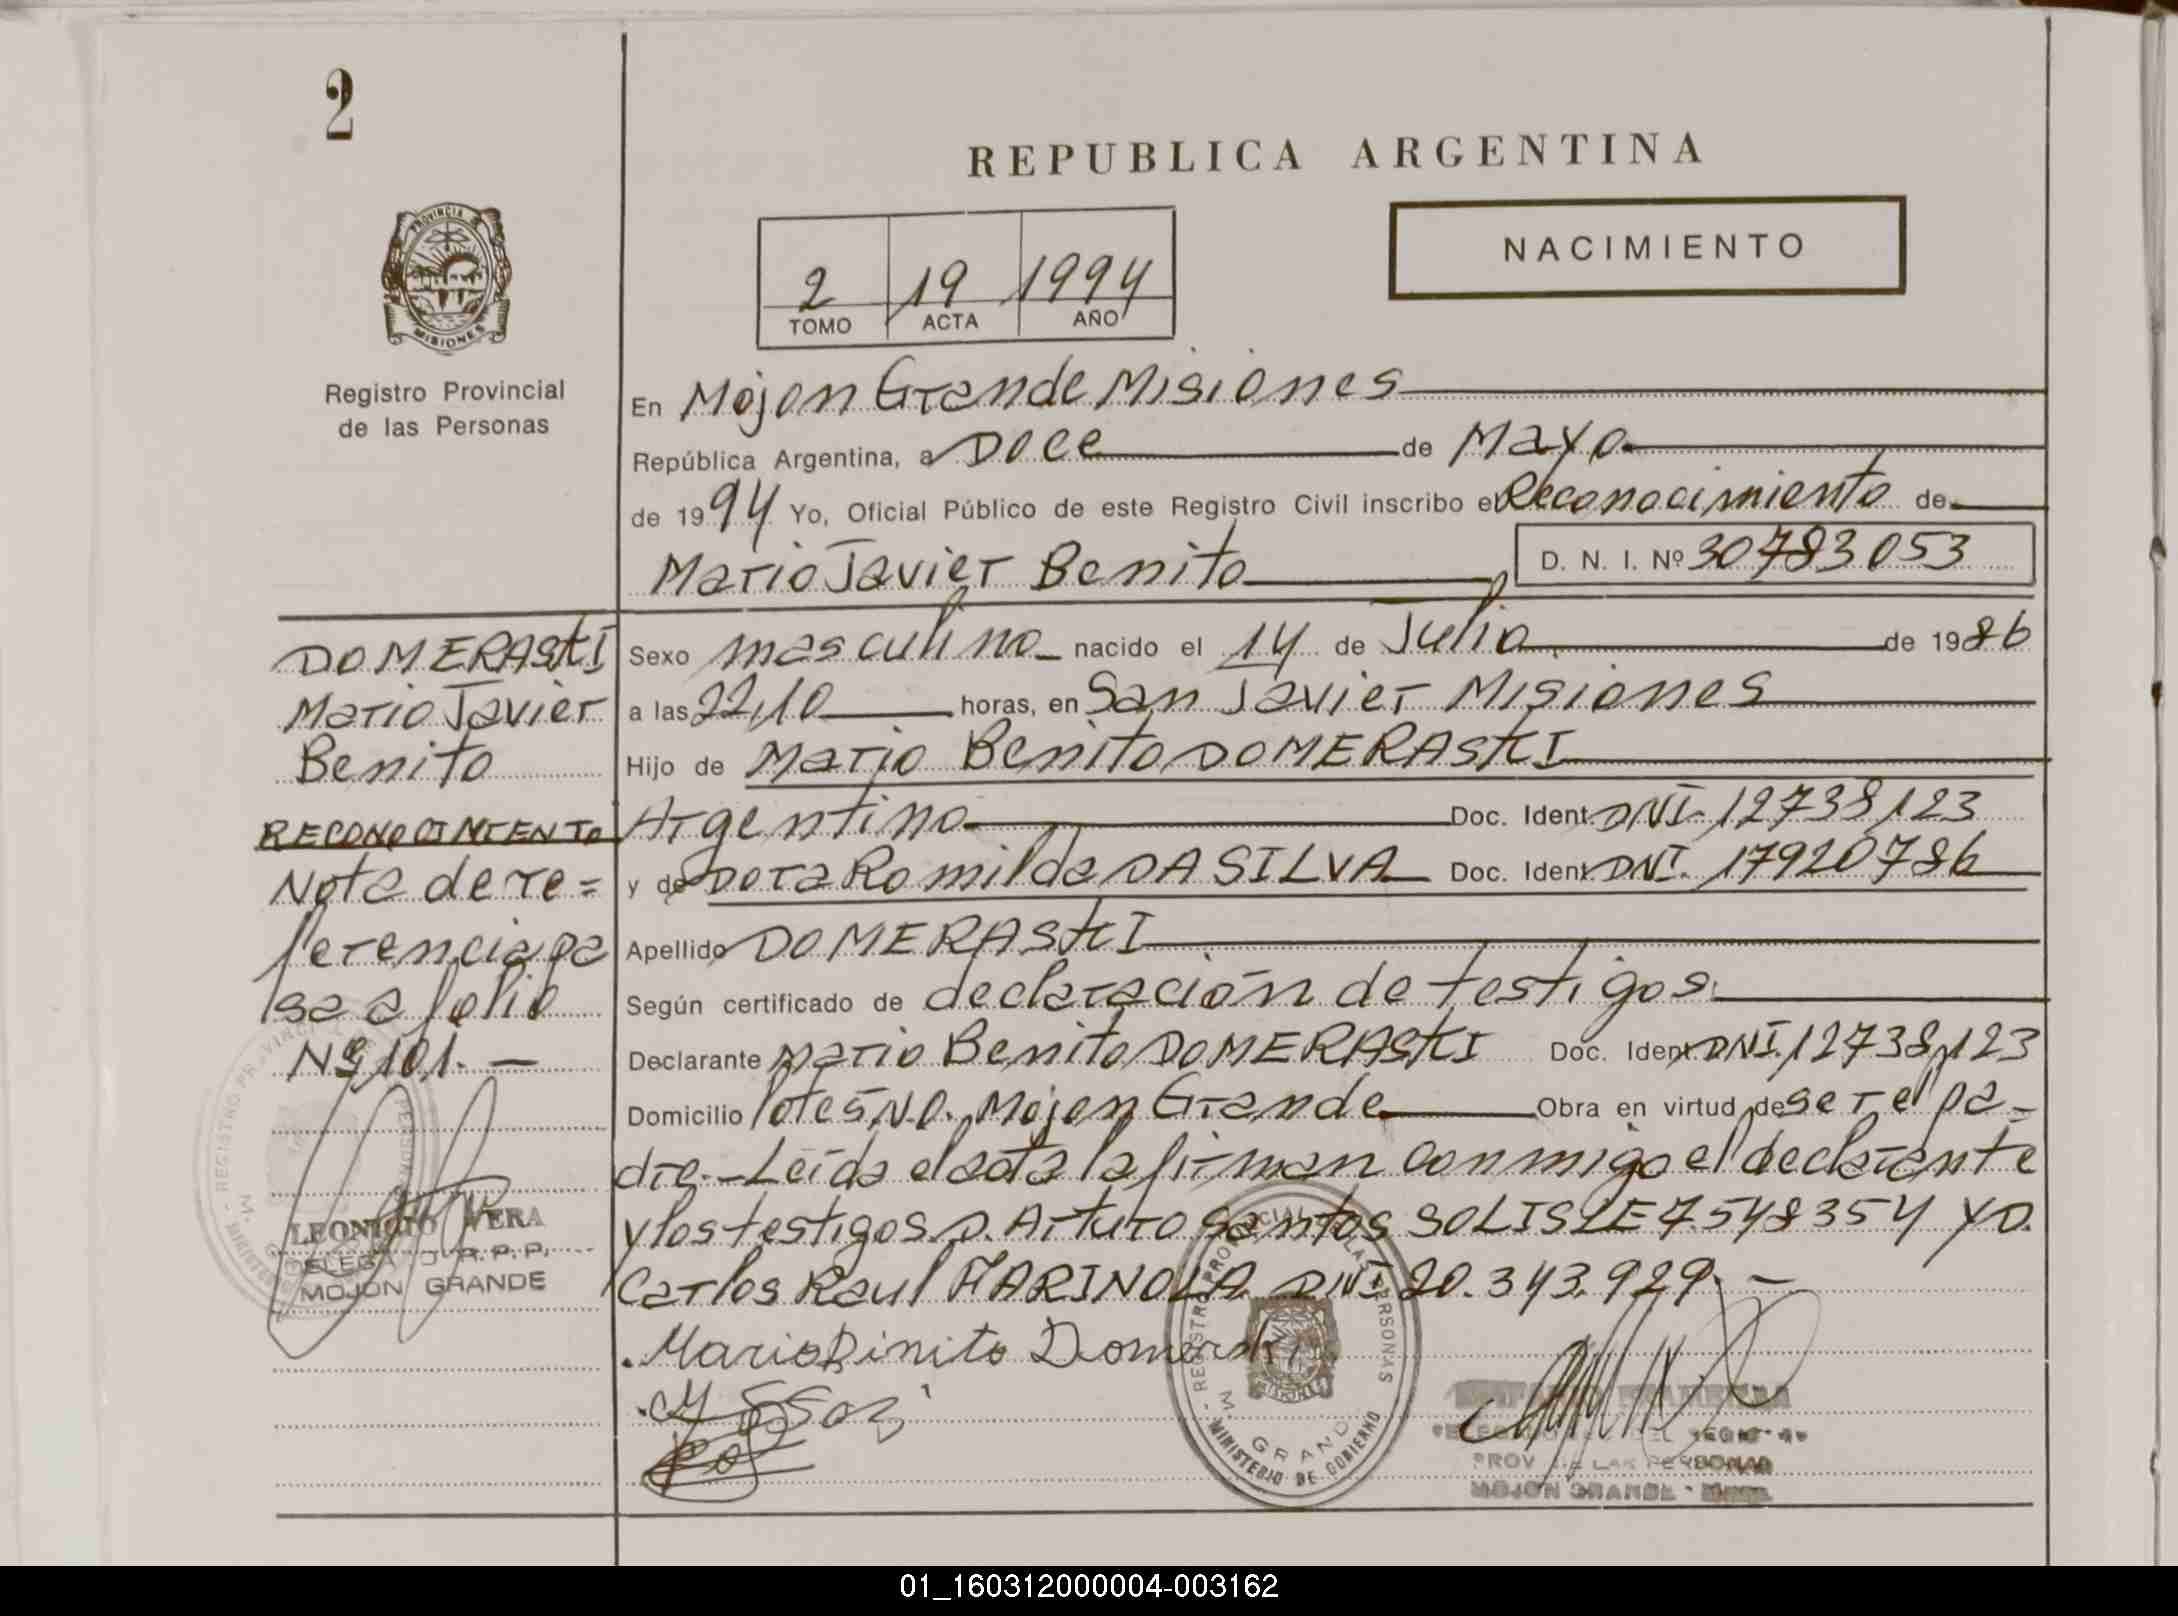 2
REPUBLICA ARGENTINA
NACIMIENTO
PROVINCIA DE
MISIONES
2 19 1994
TOMO ACTA AÑO
Registro Provincial
de las Personas
En Mojon Grande Misiones
República Argentina, a Doce de Mayo
de 1994 Yo, Oficial Público de este Registro Civil inscribo el Reconocimiento de
Mario Javier Benito D. N. I. Nº 30783053
DOMERASKI
Mario Javier
Benito
RECONOCIMIENTO
Nota de re=
ferencia pa
sa a folio
Nº 101.—
LEONICIO VERA
DELEGA J R. P. P.
MOJON GRANDE
Sexo masculino nacido el 14 de Julio de 1986
a las 22,10 horas, en San Javier Misiones
Hijo de Mario Benito DOMERASKI
Argentino Doc. Ident. DNI. 12738123
y de Dora Romilda DA SILVA Doc. Ident. DNI. 17920786
Apellido DOMERASKI
Según certificado de declaración de testigos.
Declarante Mario Benito DOMERASKI Doc. Ident. DNI. 12738123
Domicilio lote S.N.O. Mojon Grande Obra en virtud de ser el pa-
dre.-Leída el acta la firman conmigo el declarante
y los testigos D. Arturo Santos SOLIS LE 7.548354 Y D.
Carlos Raul FARINOLA DNI 20.343.929.—
Mario Binito Domeraski
REGISTRO PROVINCIAL DE LAS PERSONAS
M. GRANDE
MINISTERIO DE GOBIERNO
PROV DE LAS PERSONAS
MOJON GRANDE -
01_160312000004-003162